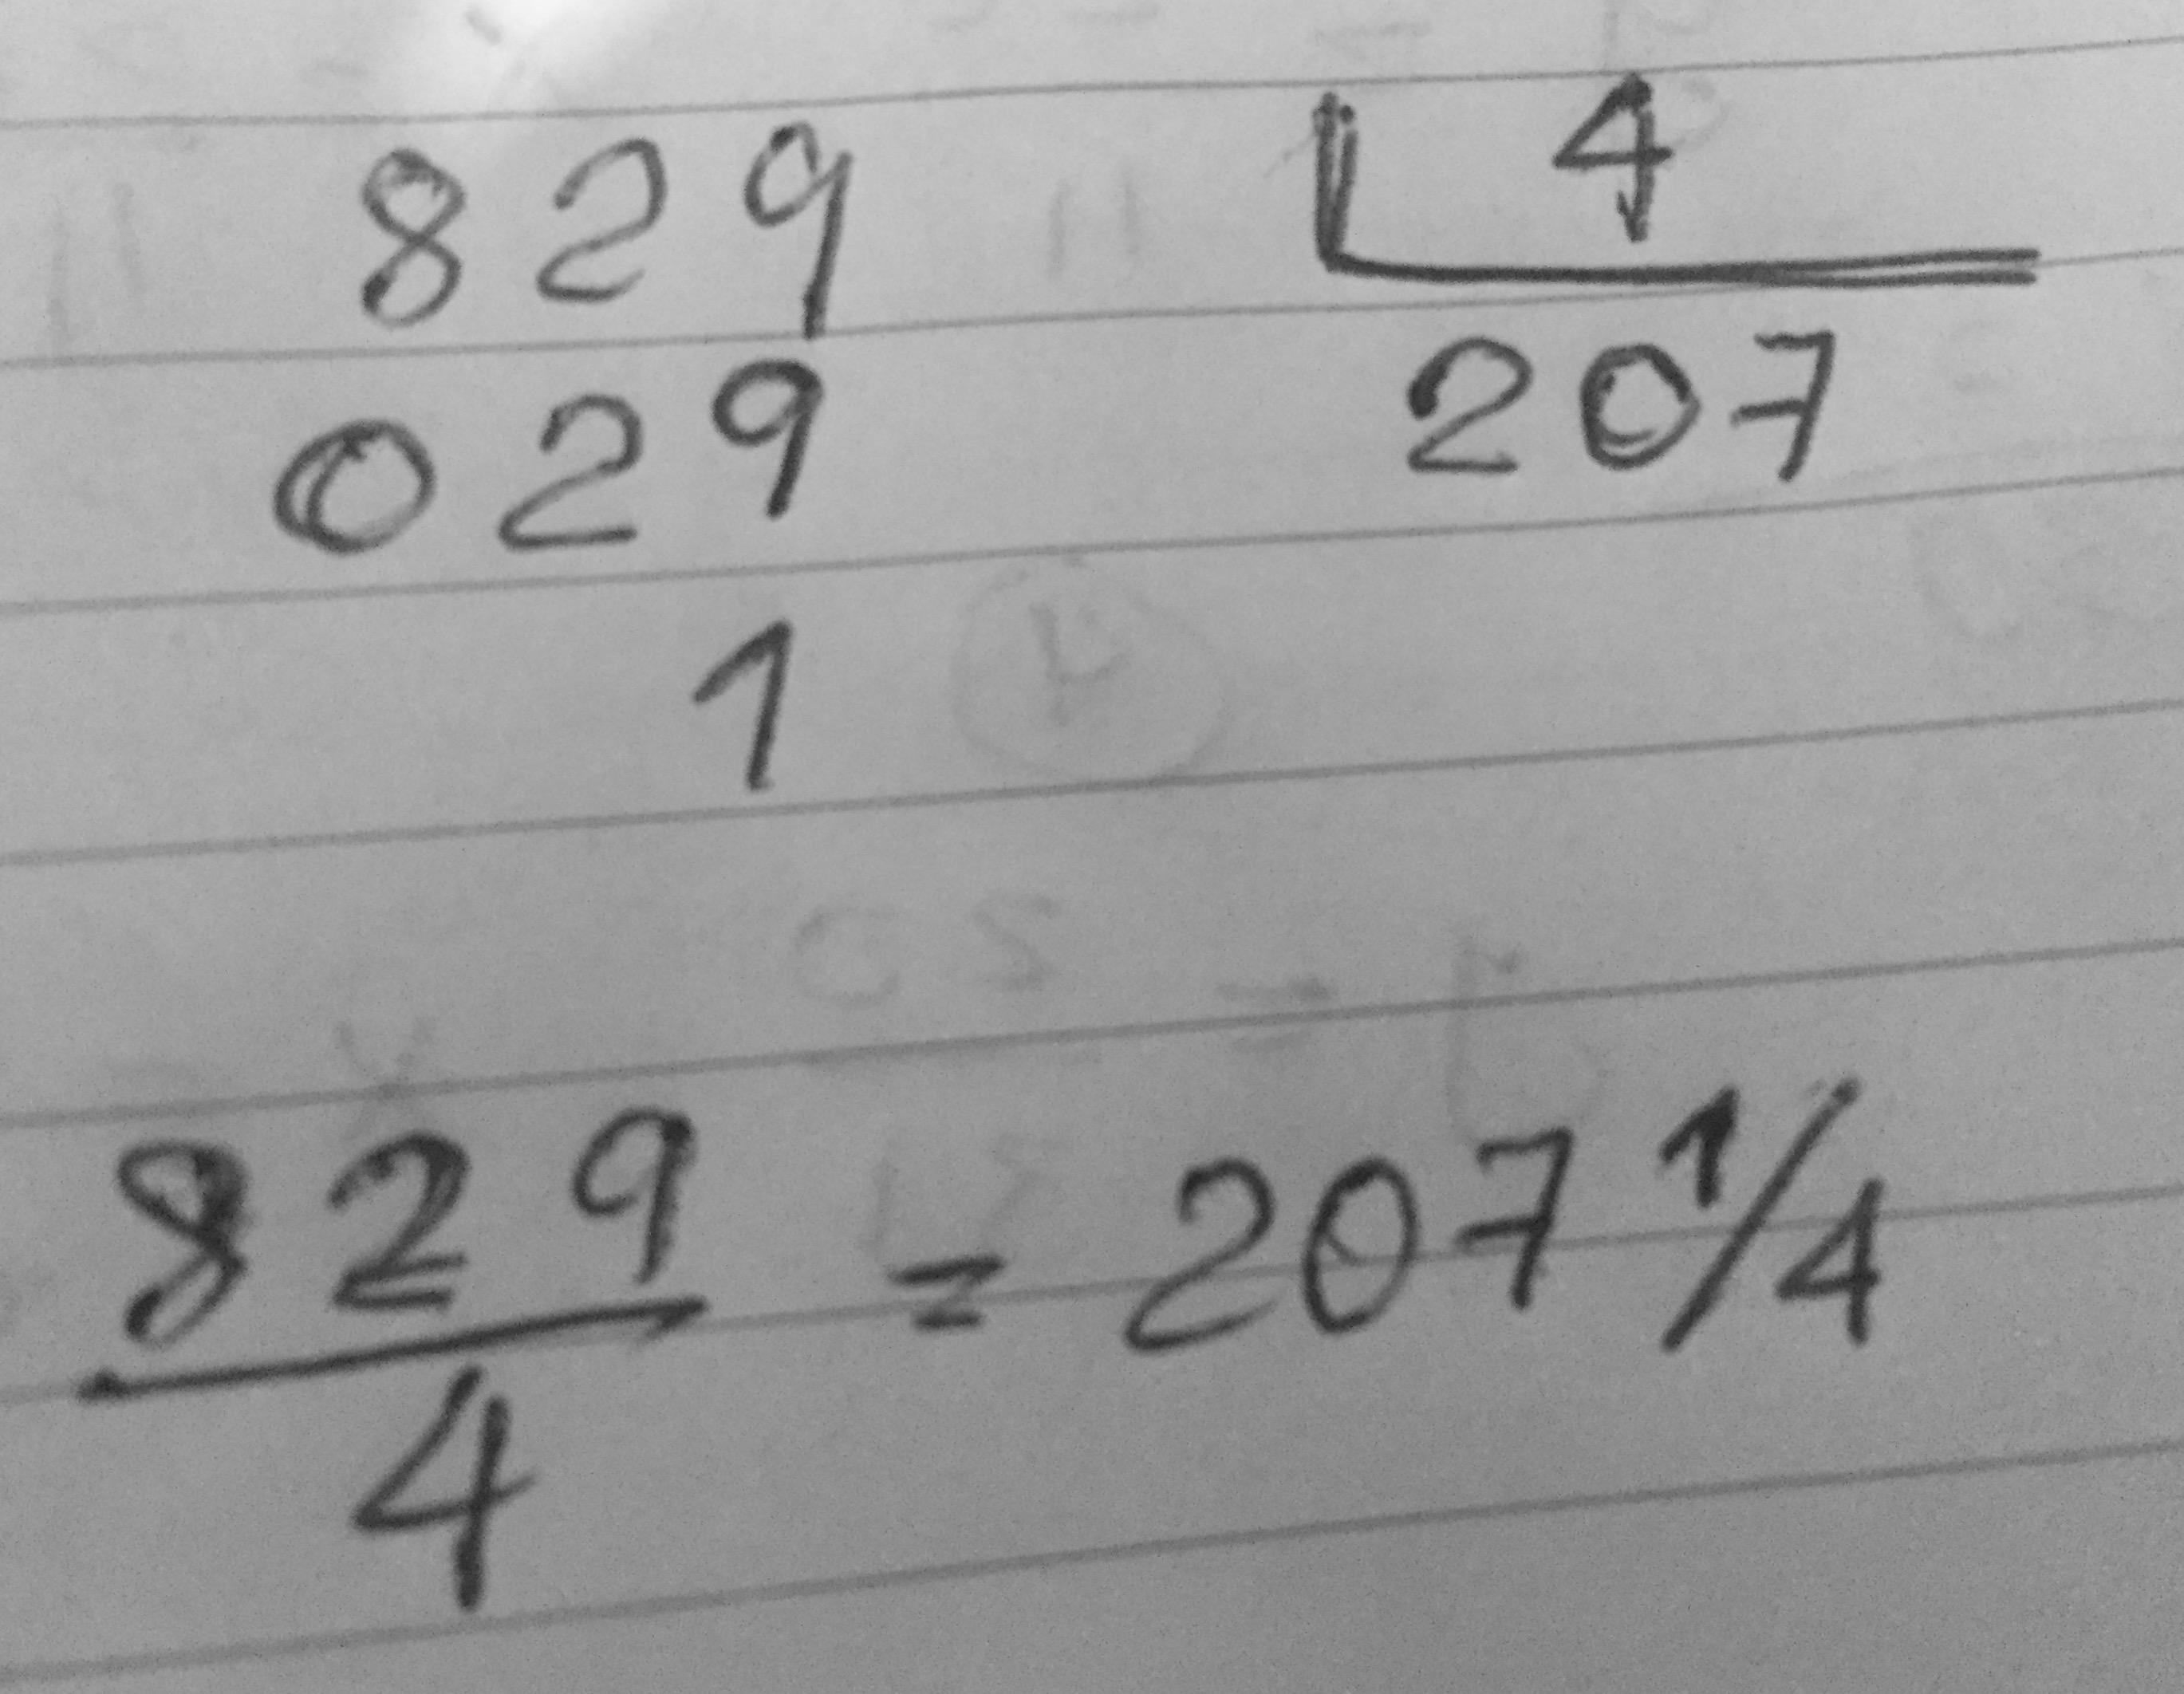 829 4
029 207
1
829
4
= 207 1/4